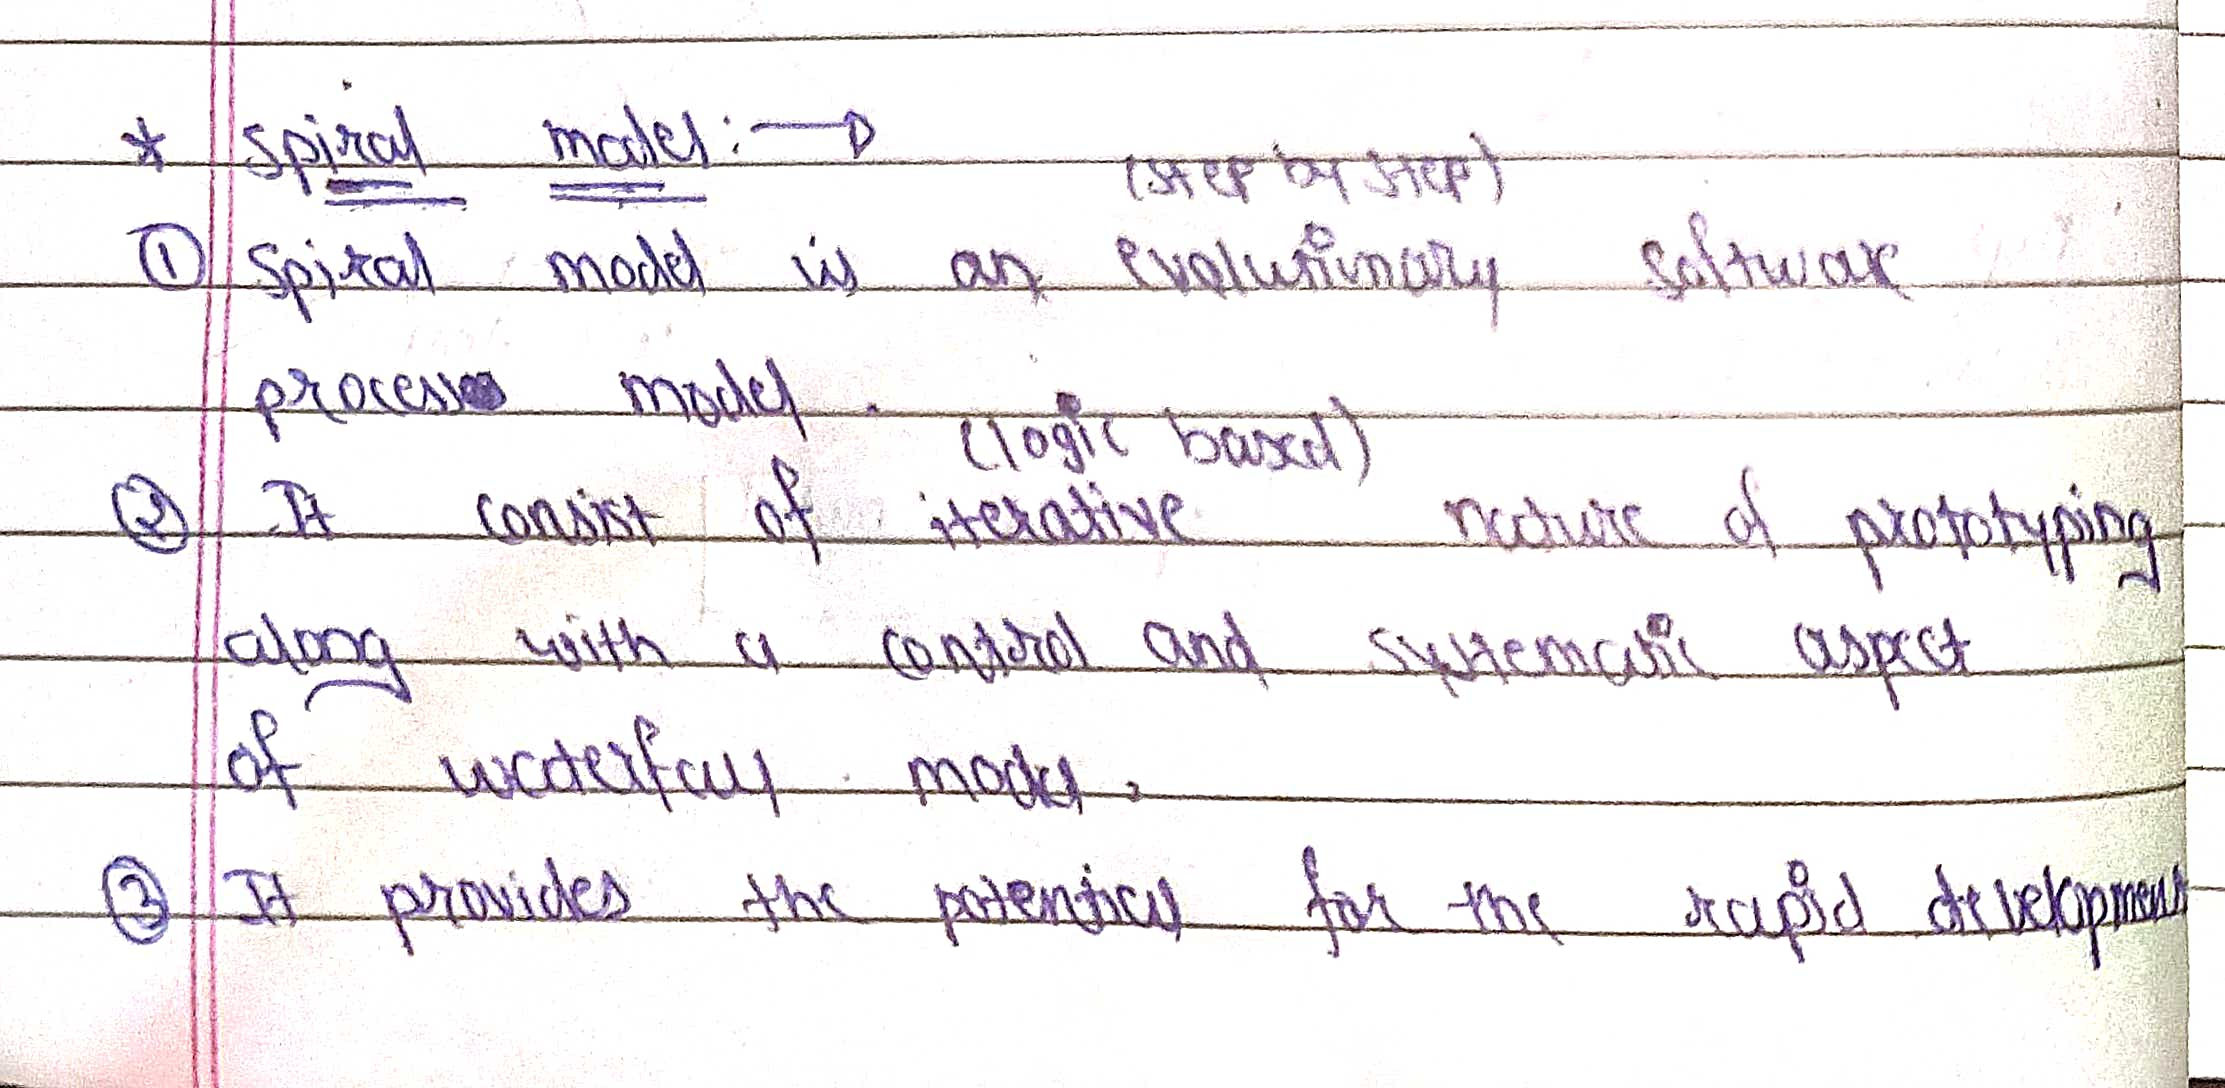 * Spiral model :→
(step by step)
① Spiral model is an evolutionary software
process model.
(logic based)
② It consist of iterative nature of prototyping
along with a control and systematic aspect
of waterfall model.
③ It provides the potential for the rapid development